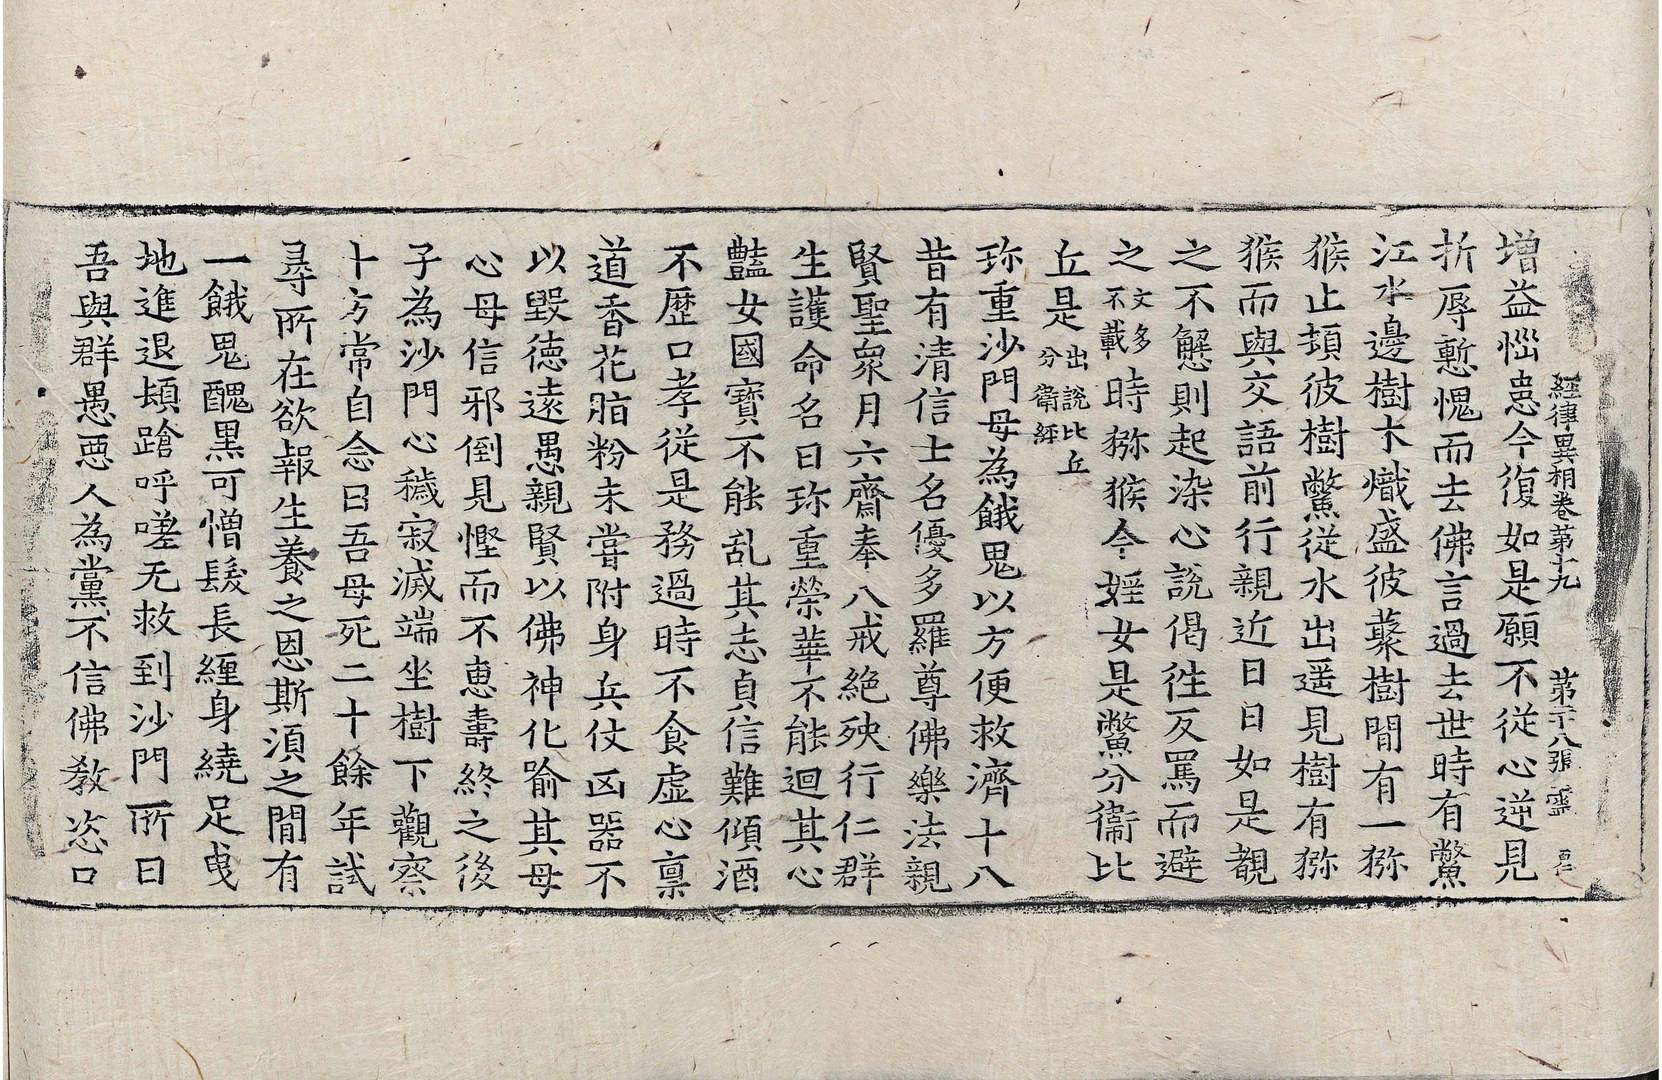 經律異相卷第十九　第二十八張　靈
增益惱患今復如是願不從心逆見
折辱慙愧而去佛言過去世時有鱉
江水邊樹木熾盛彼藂樹閒有一獼
猴止頓彼樹鱉從水出遥見樹有獼
猴而與交語前行親近日日如是覩
之不懈則起染心說偈徃反罵而避
之文多不載時獼猴今婬女是鱉分衞比
丘是出說比丘分衞經
珎重沙門母為餓鬼以方便救濟十八
昔有清信士名優多羅尊佛樂法親
賢聖衆月六齋奉八戒絶殃行仁群
生護命名曰珎重榮華不能迴其心
豔女國寶不能乱其志貞信難傾酒
不歷口孝從是務過時不食虚心禀
道香花脂粉未嘗附身兵仗凶器不
以毀德遠愚親賢以佛神化喻其母
心母信邪倒見慳而不惠壽終之後
子為沙門心穢寂滅端坐樹下觀察
十方常自念曰吾母死二十餘年試
尋所在欲報生養之恩斯須之閒有
一餓鬼醜黒可憎髮長纏身繞足曳
地進退頓蹌呼嗟无救到沙門所曰
吾與群愚惡人為黨不信佛教恣口